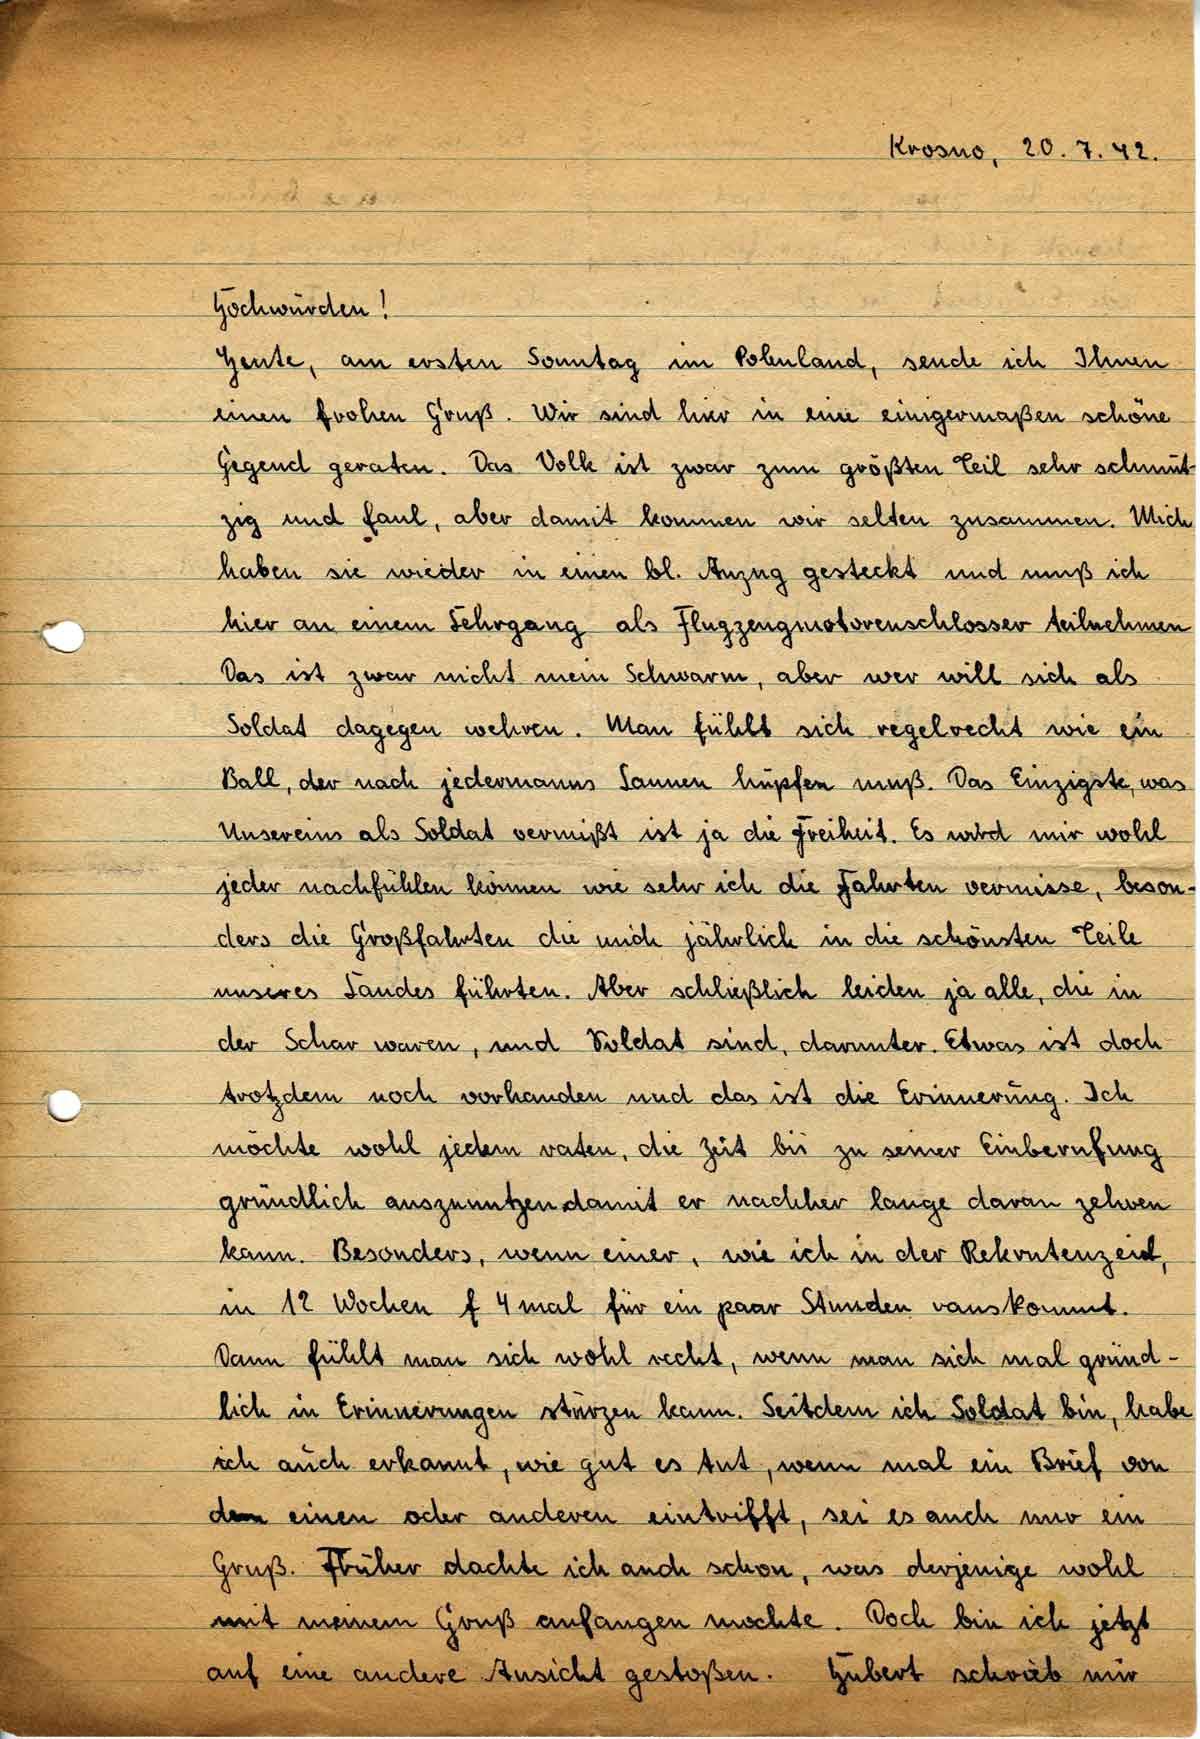 Krosno, 20.7.42.
Hochwürden!
Heute, am ersten Sonntag im Polenland, sende ich Ihnen
einen frohen Gruß. Wir sind hier in eine einigermaßen schöne
Gegend geraten. Das Volk ist zwar zum größten Teil sehr schmut-
zig und faul, aber damit kommen wir selten zusammen. Mich
haben sie wieder in einen bl. Anzug gesteckt und muß ich
hier an einem Lehrgang als Flugzeugmotorenschlosser teilnehmen
Das ist zwar nicht mein Schwarm, aber wer will sich als
Soldat dagegen wehren. Man fühlt sich regelrecht wie ein
Ball, der nach jedermanns Launen hüpfen muß. Das Einzigste, was
Unsereins als Soldat vermißt ist ja die Freiheit. Es wird mir wohl
jeder nachfühlen können wie sehr ich die Fahrten vermisse, beson-
ders die Großfahrten die mich jährlich in die schönsten Teile
unseres Landes führten. Aber schließlich leiden ja alle, die in
der Schar waren, und Soldat sind, darunter. Etwas ist doch
trotzdem noch vorhanden und das ist die Erinnerung. Ich
möchte wohl jedem raten, die Zeit bis zu seiner Einberufung
gründlich auszunutzen damit er nachher lange daran zehren
kann. Besonders, wenn einer, wie ich in der Rekrutenzeit,
in 12 Wochen 4 mal für ein paar Stunden rauskommt.
Dann fühlt man sich wohl recht, wenn man sich mal gründ-
lich in Erinnerungen stürzen kann. Seitdem ich Soldat bin, habe
ich auch erkannt, wie gut es tut, wenn mal ein Brief von
dem einen oder anderen eintrifft, sei es auch nur ein
Gruß. Früher dachte ich auch schon, was derjenige wohl
mit meinem Gruß anfangen mochte. Doch bin ich jetzt
auf eine andere Ansicht gestoßen. Hubert schrieb mir